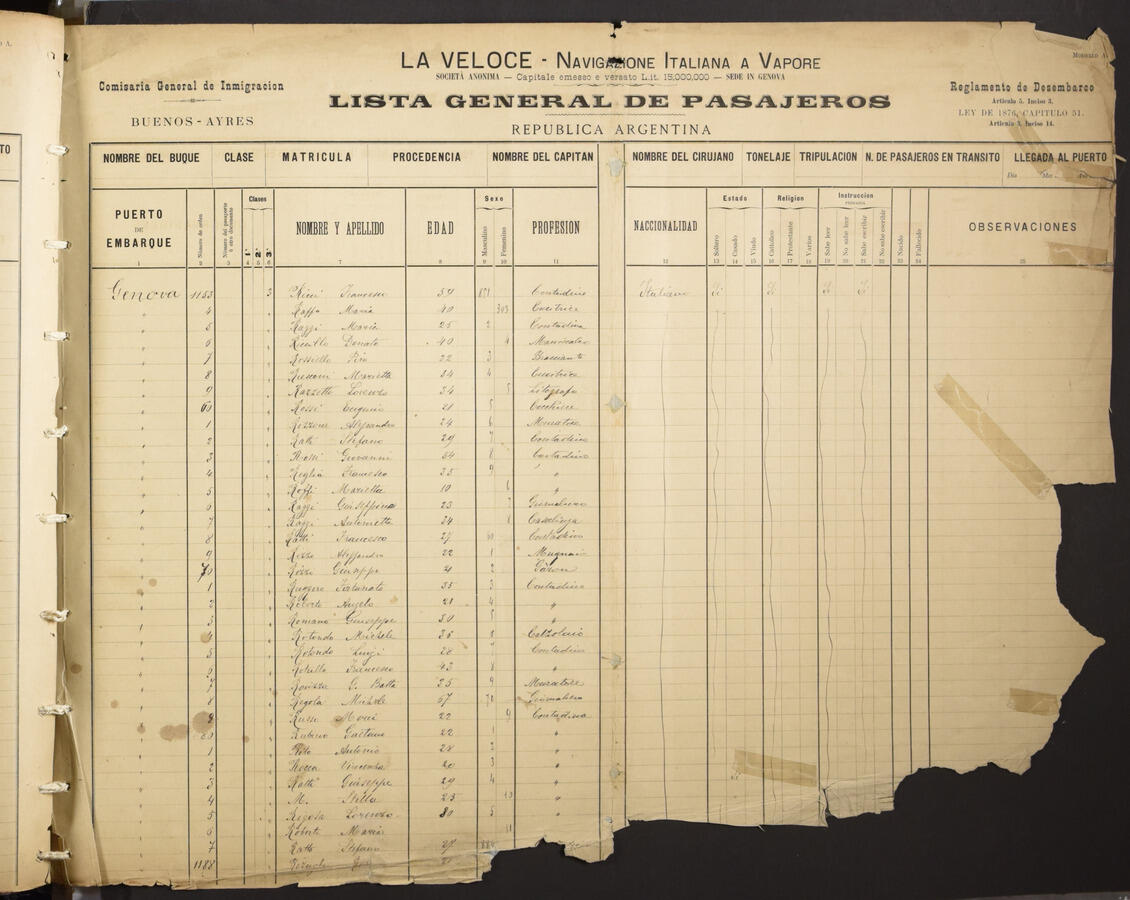 O A.
TO
MODELLO A
LA VELOCE - NAVIGAZIONE ITALIANA A VAPORE
SOCIETÀ ANONIMA — Capitale emesso e versato L.it. 15,000,000 — SEDE IN GENOVA
Comisaria General de Inmigracion
BUENOS-AYRES
LISTA GENERAL DE PASAJEROS
REPUBLICA ARGENTINA
Reglamento de Desembarco
Articulo 5. Inciso 3.
LEY DE 1876, CAPITULO 51.
Articulo 3. Inciso 14.
NOMBRE DEL BUQUE CLASE MATRICULA PROCEDENCIA NOMBRE DEL CAPITAN NOMBRE DEL CIRUJANO TONELAJE TRIPULACION N. DE PASAJEROS EN TRANSITO LLEGADA AL PUERTO
Dia
PUERTO DE EMBARQUE Número de orden Número del pasaporte ó otro documento Clases 1. 2. 3. NOMBRE Y APELLIDO EDAD Sexo Masculino Femenino PROFESION NACCIONALIDAD Estado Soltero Casado Viudo Religion Catolico Protestante Varios Instruccion PRIMARIA Sabe leer No sabe leer Sabe escribir No sabe escribir Nacido Fallecido OBSERVACIONES
1 2 3 4 5 6 7 8 9 10 11 12 13 14 15 16 17 18 19 20 21 22 23 24 25
Genova 1153 3 Ricci Francesco 54 Contadino Italiana Si Si Si Si
4 Raffo Maria 40 303 Cucitrice
5 Razzi Maria 25 2 Contadina
6 Donato 40 4
7 Rossiello 22 3 Bracciante
8 Marietta 34 4 Cucitrice
9 Razzetto Lorenzo 34 5 Litografo
60 Rossi Eugenio 21 5 Cocchiere
1 Rizzone Alejandro 24 6 Muratore
2 Ratti Stefano 29 7 Contadino
3 Rossi Giovanni 54 8 Contadino
4 Reglia Francesco 35 9 "
5 Marietta 10 6 "
6 Razzi Giuseppina 23 7
7 Razzi Antonietta 34 8 Casalinga
8 Francesco 27 Contadino
9 Rizzo Alessandro 22 1 Mugnaio
70 Giuseppe 2
1 Ruggero Fortunato 35 3 Contadino
2 Roberto Angelo 21 4 "
3 Romano Giuseppe 50 5 "
4 Rotondo Michele 35 Calzolaio
5 Rotondo Luigi 28 Contadino
6 Rotella Francesco 43 8 "
7 G. Batta 25 9 Muratore
8 Regola Michele 67
9 Russo 22 9 Contadina
80 Rubino Gaetano 22 1 "
1 Antonio 28 2 "
2 Rocca Vincenzo 20 3 "
3 Ratti Giuseppe 29 4 "
4 M. Stella 23 "
5 Regola Lorenzo 80 5 "
6 Roberti Maria
7 Ratto Stefano 27
1188